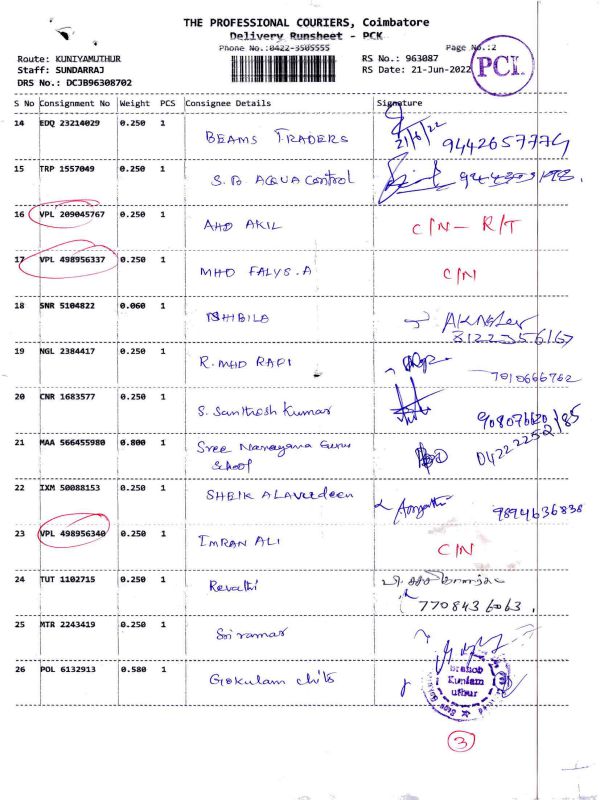 THE PROFESSIONAL COURIERS, Coimbatore
Delivery Runsheet - PCK
Phone No.:0422-3505555
Page No.:2
Route: KUNIYAMUTHUR
RS No.: 963087
Staff: SUNDARRAJ
RS Date: 21-Jun-2022
DRS No.: DCJB96308702
PCL
S No Consignment No Weight PCS Consignee Details Signature
14 EDQ 23214029 0.250 1 BEAMS TRADERS 21/6/22 9442657774
15 TRP 1557049 0.250 1 S.B AQUA Control
16 VPL 209045767 0.250 1 AHD AKIL C/N - R/T
17 VPL 498956337 0.250 1 MHD FALYS.A C/N
18 SNR 5104822 0.060 1 8122356167
19 NGL 2384417 0.250 1 R. MHD RAFI 7010666762
20 CNR 1683577 0.250 1 S. Santhosh Kumar
21 MAA 566455980 0.800 1 Sree Narayana Guru
School 04222252185
22 IXM 50088153 0.250 1 SHEIK ALAVUDEEN 9894636838
23 VPL 498956340 0.250 1 IMRAN ALI C/N
24 TUT 1102715 0.250 1 Revathi
7708436063.
25 MTR 2243419 0.250 1 Sriramar
26 POL 6132913 0.580 1 Gokulam chits
Branch
Kuniam
uthur
3